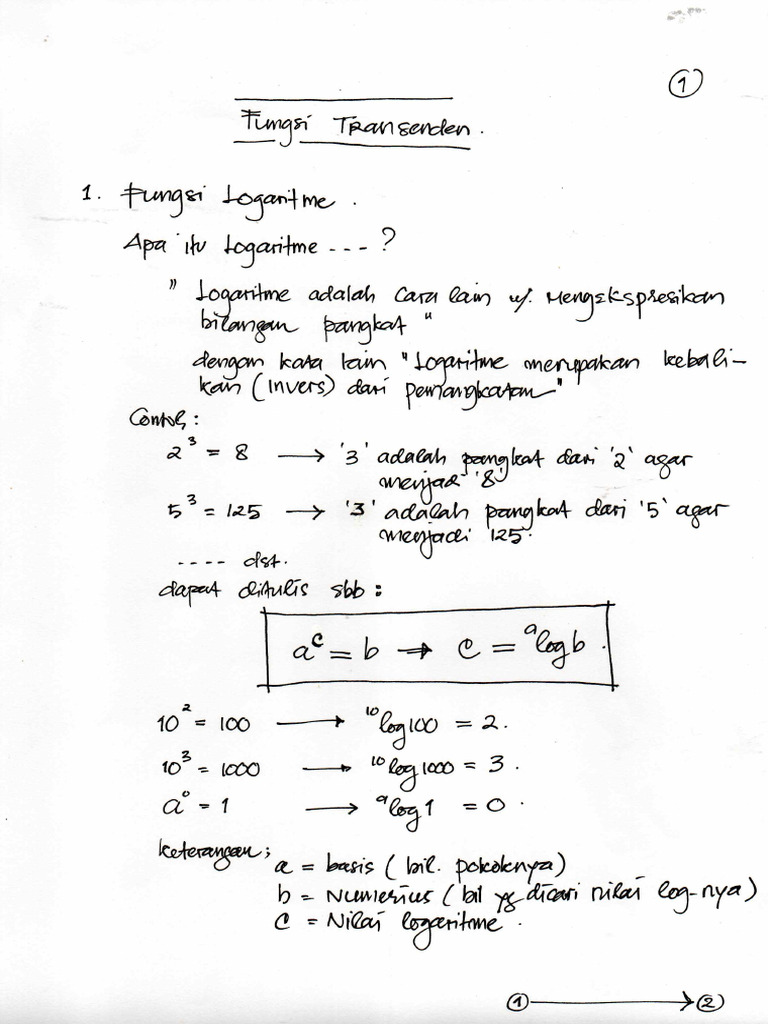 1
Fungsi Transenden.
1. Fungsi Logaritme.
Apa itu Logaritme ---- ?
" Logaritme adalah Cara lain u/. Mengekspresikan
bilangan pangkat "
dengan kata lain "Logaritme merupakan kebali-
kan (invers) dari pemangkatan"
Contoh :
2³ = 8 → '3' adalah pangkat dari '2' agar
menjadi '8'
5³ = 125 → '3' adalah pangkat dari '5' agar
menjadi 125.
---- dst.
dapat ditulis sbb :
aᶜ = b → c = ᵃlog b .
10² = 100 → ¹⁰log 100 = 2.
10³ = 1000 → ¹⁰log 1000 = 3 .
a⁰ = 1 → ᵃlog 1 = 0 .
keterangan ; a = basis ( bil. pokoknya)
b = Numerius ( bil yg dicari nilai log-nya )
c = Nilai logaritme .
1 → 2